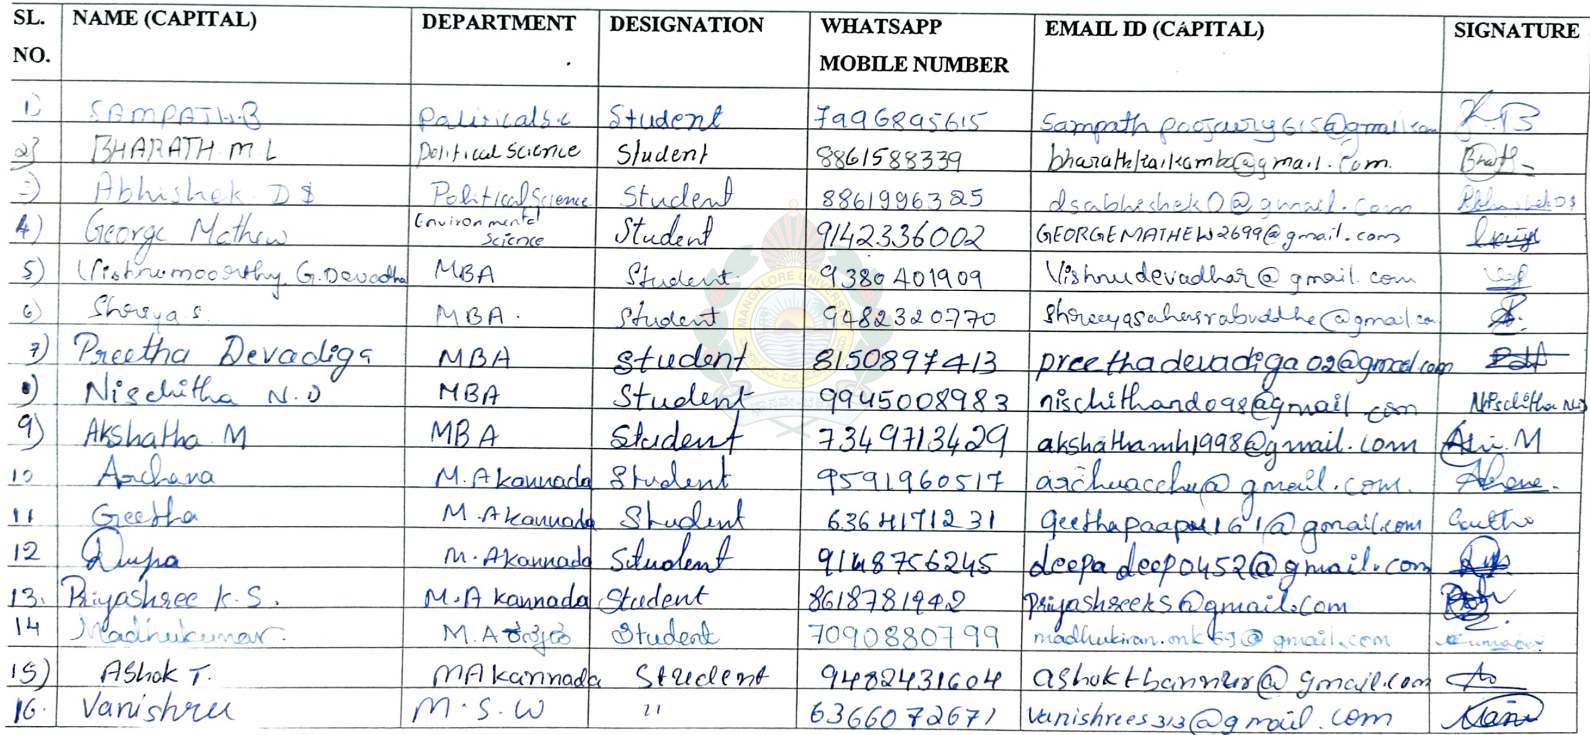 SL. NO. NAME (CAPITAL) DEPARTMENT DESIGNATION WHATSAPP MOBILE NUMBER EMAIL ID (CAPITAL) SIGNATURE
1) SAMPATH.B Student 7996895615 @gmail.com
2) BHARATH M L Political Science Student 8861588339 @gmail.com. Bharath
3) Abhishek D S Political Science Student 8861996325 dsabhishek0@gmail.com Abhishek DS
4) George Mathew Environmental Science Student 9142336002 GEORGEMATHEW2699@gmail.com
5) Vishnumoorthy. G. Devadha MBA Student 9380401909 Vishnudevadhar@gmail.com
6) Shreya S. MBA. Student 9482320770 Shreeyasahasrabuddhe@gmail.co
7) Preetha Devadiga MBA Student 8150897413 preethadevadiga02@gmail.com
8) Nischitha N.D MBA Student 9945008983 nischithand098@gmail.com Nischitha N.D
9) Akshatha M MBA Student 7349713429 akshathamh1998@gmail.com
10 Archana M.A kannada Student 9591960517 archuacchu@gmail.com.
11 Geetha M.A kannada Student 6364171231 @gmail.com Geetha
12 Deepa M.A kannada Student 9148756245 deepadeep0452@gmail.com
13. Priyashree K.S. M.A kannada Student 8618781942 priyashreeks@gmail.com
14 Madhukumar. M.A ಕನ್ನಡ Student 7090880799 madhukiran.mk69@gmail.com
15) Ashok T. MA kannada Student 9482431604 ashokthannur@gmail.com
16. Vanishree M.S.W 11 6366072671 Vanishrees313@gmail.com
MANGALORE UNIVERSITY